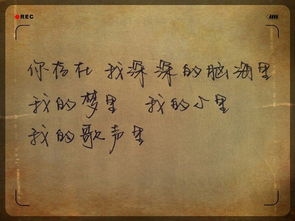 REC
你存在 我深深的脑海里
我的梦里 我的心里
我的歌声里